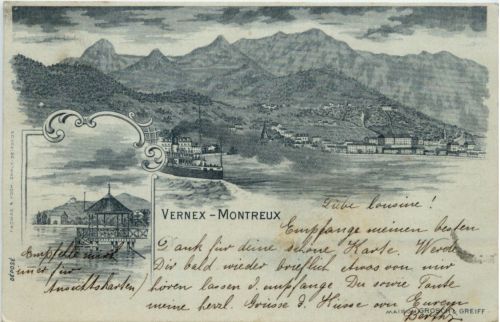 VERNEX - MONTREUX
Liebe Cousine!
Empfange meinen besten
Dank für deine schöne Karte. Werde
Dir bald wieder brieflich etwas von mir
hören lassen & empfange Du sowie Tante
meine herzl. Grüsse & Küsse von Eurem
Empfehle mich
immer für
Ansichtskarten!
DÉPOSÉ
GREIFF